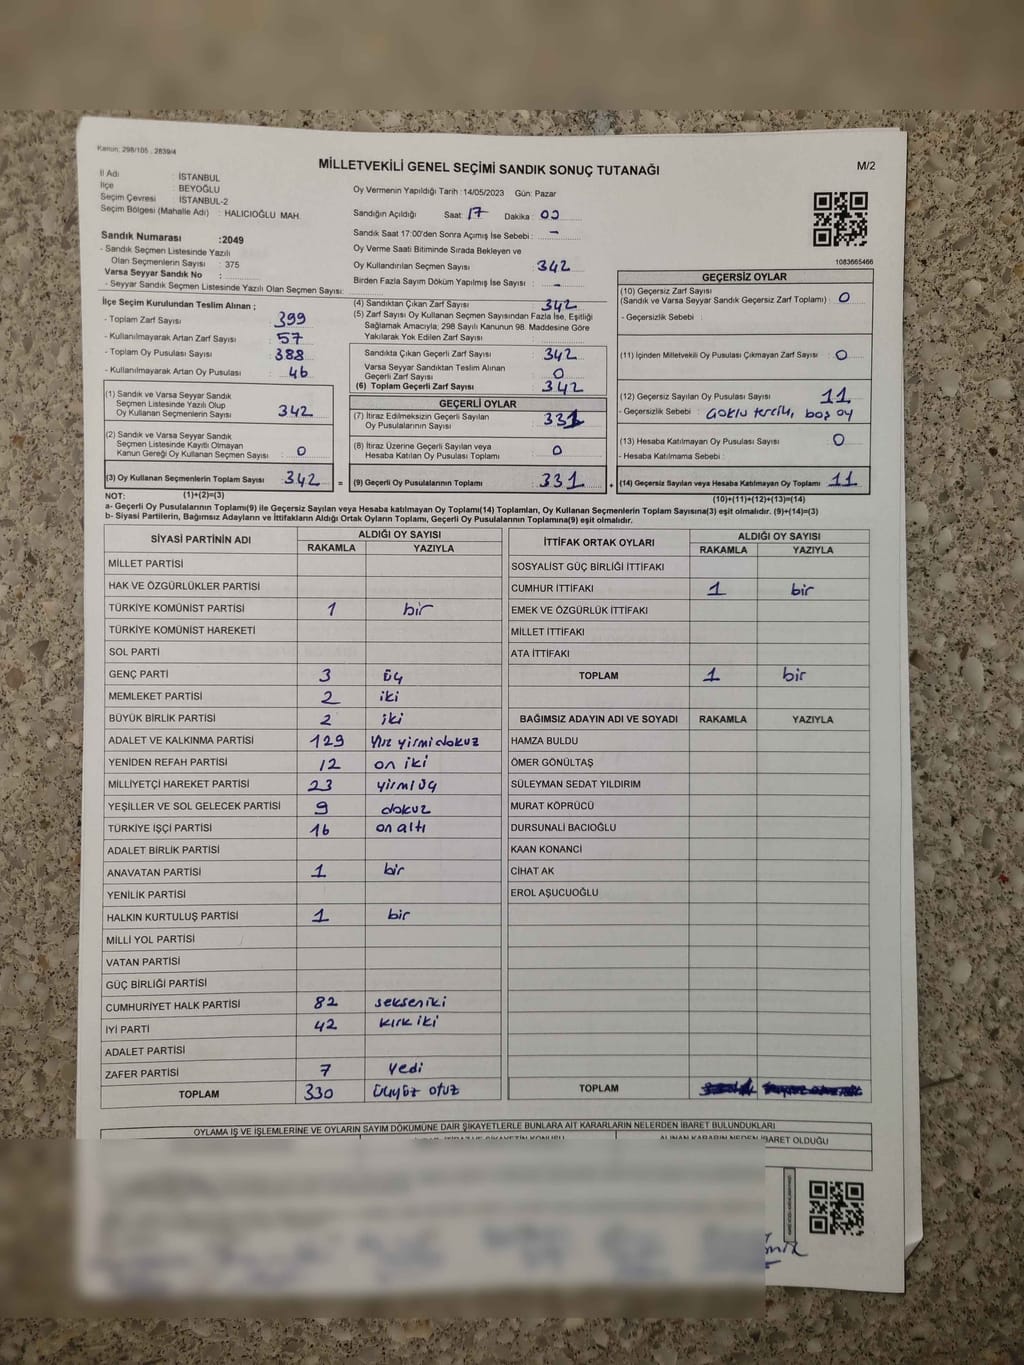 Kanun: 298/105 , 2839/4
MİLLETVEKİLİ GENEL SEÇİMİ SANDIK SONUÇ TUTANAĞI
M/2
İl Adı : İSTANBUL
İlçe : BEYOĞLU
Seçim Çevresi : İSTANBUL-2
Seçim Bölgesi (Mahalle Adı) : HALICIOĞLU MAH.
Sandık Numarası :2049
- Sandık Seçmen Listesinde Yazılı
Olan Seçmenlerin Sayısı : 375
Varsa Seyyar Sandık No :
- Seyyar Sandık Seçmen Listesinde Yazılı Olan Seçmen Sayısı:
Oy Vermenin Yapıldığı Tarih : 14/05/2023 Gün: Pazar
Sandığın Açıldığı Saat: 17 Dakika : 00
Sandık Saat 17:00'den Sonra Açılmış İse Sebebi : -
Oy Verme Saati Bitiminde Sırada Bekleyen ve
Oy Kullandırılan Seçmen Sayısı : 342
Birden Fazla Sayım Döküm Yapılmış İse Sayısı : -
1083665466
İlçe Seçim Kurulundan Teslim Alınan ;
- Toplam Zarf Sayısı : 399
- Kullanılmayarak Artan Zarf Sayısı : 57
- Toplam Oy Pusulası Sayısı : 388
- Kullanılmayarak Artan Oy Pusulası : 46
(1) Sandık ve Varsa Seyyar Sandık
Seçmen Listesinde Yazılı Olup
Oy Kullanan Seçmenlerin Sayısı : 342
(2) Sandık ve Varsa Seyyar Sandık
Seçmen Listesinde Kayıtlı Olmayan
Kanun Gereği Oy Kullanan Seçmen Sayısı : 0
(3) Oy Kullanan Seçmenlerin Toplam Sayısı : 342 =
(4) Sandıktan Çıkan Zarf Sayısı : 342
(5) Zarf Sayısı Oy Kullanan Seçmen Sayısından Fazla İse, Eşitliği
Sağlamak Amacıyla, 298 Sayılı Kanunun 98. Maddesine Göre
Yakılarak Yok Edilen Zarf Sayısı :
Sandıkta Çıkan Geçerli Zarf Sayısı : 342
Varsa Seyyar Sandıktan Teslim Alınan
Geçerli Zarf Sayısı : 0
(6) Toplam Geçerli Zarf Sayısı : 342
GEÇERLİ OYLAR
(7) İtiraz Edilmeksizin Geçerli Sayılan
Oy Pusulalarının Sayısı : 331
(8) İtiraz Üzerine Geçerli Sayılan veya
Hesaba Katılan Oy Pusulası Toplamı : 0
(9) Geçerli Oy Pusulalarının Toplamı : 331 +
GEÇERSİZ OYLAR
(10) Geçersiz Zarf Sayısı
(Sandık ve Varsa Seyyar Sandık Geçersiz Zarf Toplamı) : 0
- Geçersizlik Sebebi :
(11) İçinden Milletvekili Oy Pusulası Çıkmayan Zarf Sayısı : 0
(12) Geçersiz Sayılan Oy Pusulası Sayısı : 11
- Geçersizlik Sebebi : Çoklu tercih, boş oy
(13) Hesaba Katılmayan Oy Pusulası Sayısı : 0
- Hesaba Katılmama Sebebi :
(14) Geçersiz Sayılan veya Hesaba Katılmayan Oy Toplamı : 11
NOT: (1)+(2)=(3)
(10)+(11)+(12)+(13)=(14)
a- Geçerli Oy Pusulalarının Toplamı(9) ile Geçersiz Sayılan veya Hesaba Katılmayan Oy Toplamı(14) Toplamları, Oy Kullanan Seçmenlerin Toplam Sayısına(3) eşit olmalıdır. (9)+(14)=(3)
b- Siyasi Partilerin, Bağımsız Adayların ve İttifakların Aldığı Ortak Oyların Toplamı, Geçerli Oy Pusulalarının Toplamına(9) eşit olmalıdır.
SİYASİ PARTİNİN ADI
ALDIĞI OY SAYISI
RAKAMLA YAZIYLA
MİLLET PARTİSİ
HAK VE ÖZGÜRLÜKLER PARTİSİ
TÜRKİYE KOMÜNİST PARTİSİ 1 bir
TÜRKİYE KOMÜNİST HAREKETİ
SOL PARTİ
GENÇ PARTİ 3 üç
MEMLEKET PARTİSİ 2 iki
BÜYÜK BİRLİK PARTİSİ 2 iki
ADALET VE KALKINMA PARTİSİ 129 yüz yirmi dokuz
YENİDEN REFAH PARTİSİ 12 on iki
MİLLİYETÇİ HAREKET PARTİSİ 23 yirmi üç
YEŞİLLER VE SOL GELECEK PARTİSİ 9 dokuz
TÜRKİYE İŞÇİ PARTİSİ 16 on altı
ADALET BİRLİK PARTİSİ
ANAVATAN PARTİSİ 1 bir
YENİLİK PARTİSİ
HALKIN KURTULUŞ PARTİSİ 1 bir
MİLLİ YOL PARTİSİ
VATAN PARTİSİ
GÜÇ BİRLİĞİ PARTİSİ
CUMHURİYET HALK PARTİSİ 82 seksen iki
İYİ PARTİ 42 kırk iki
ADALET PARTİSİ
ZAFER PARTİSİ 7 yedi
TOPLAM 330 üçyüz otuz
İTTİFAK ORTAK OYLARI
ALDIĞI OY SAYISI
RAKAMLA YAZIYLA
SOSYALİST GÜÇ BİRLİĞİ İTTİFAKI
CUMHUR İTTİFAKI 1 bir
EMEK VE ÖZGÜRLÜK İTTİFAKI
MİLLET İTTİFAKI
ATA İTTİFAKI
TOPLAM 1 bir
BAĞIMSIZ ADAYIN ADI VE SOYADI RAKAMLA YAZIYLA
HAMZA BULDU
ÖMER GÖNÜLTAŞ
SÜLEYMAN SEDAT YILDIRIM
MURAT KÖPRÜCÜ
DURSUNALİ BACIOĞLU
KAAN KONANCİ
CİHAT AK
EROL AŞUCUOĞLU
TOPLAM
OYLAMA İŞ VE İŞLEMLERİNE VE OYLARIN SAYIM DÖKÜMÜNE DAİR ŞİKAYETLERLE BUNLARA AİT KARARLARIN NELERDEN İBARET BULUNDUKLARI
ALINAN KARARIN NEDEN İBARET OLDUĞU